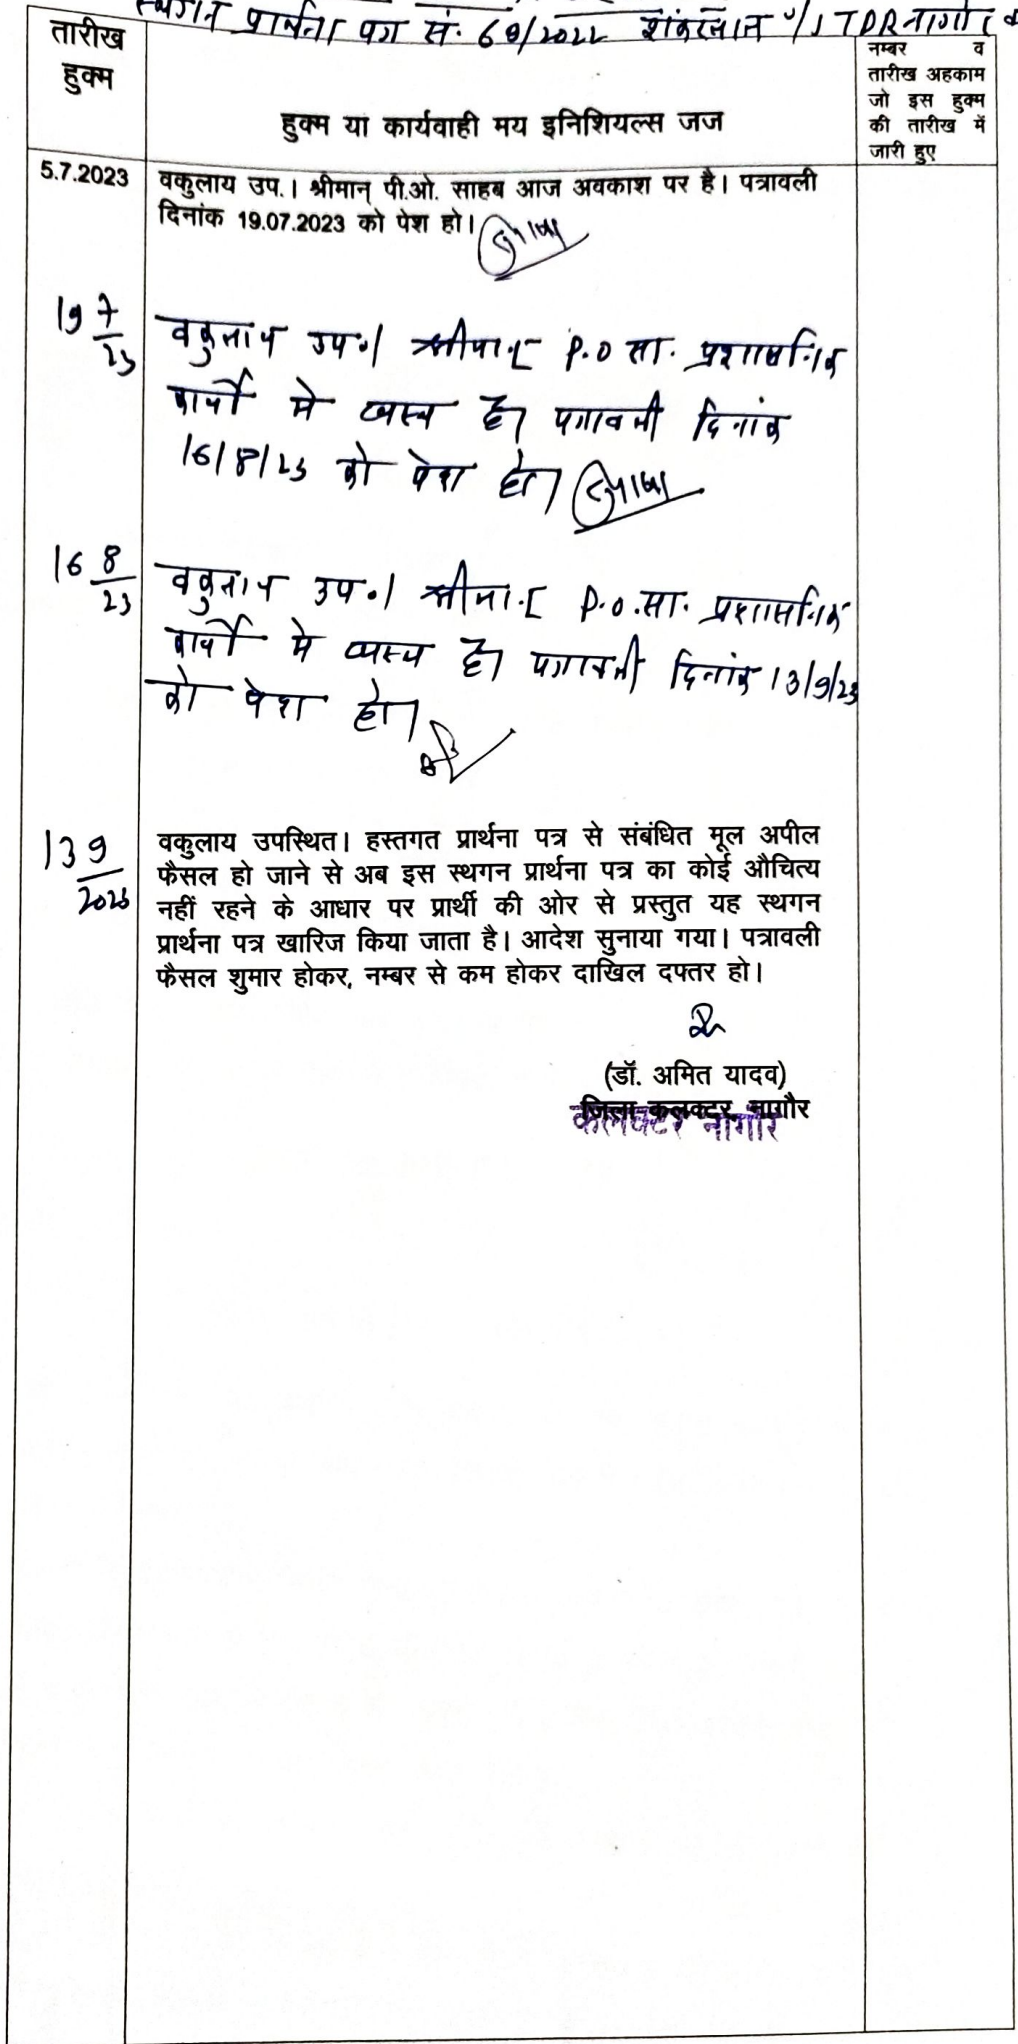 स्थगन प्रार्थना पत्र सं. 69/2022 शंकरलाल v/s TDR नागौर
तारीख
हुक्म
हुक्म या कार्यवाही मय इनिशियल्स जज
नम्बर व
तारीख अहकाम
जो इस हुक्म
की तारीख में
जारी हुए
5.7.2023
वकुलाय उप.। श्रीमान् पी.ओ. साहब आज अवकाश पर है। पत्रावली
दिनांक 19.07.2023 को पेश हो।
19 7/23
वकुलाय उप.। श्रीमान् P.O सा. प्रशासनिक
कार्यो मे व्यस्त है। पत्रावली दिनांक
16/8/23 को पेश हो।
16 8/23
वकुलाय उप.। श्रीमान् P.O. सा. प्रशासनिक
कार्यो मे व्यस्त है। पत्रावली दिनांक 13/9/23
को पेश हो।
13 9/2023
वकुलाय उपस्थित। हस्तगत प्रार्थना पत्र से संबंधित मूल अपील
फैसल हो जाने से अब इस स्थगन प्रार्थना पत्र का कोई औचित्य
नहीं रहने के आधार पर प्रार्थी की ओर से प्रस्तुत यह स्थगन
प्रार्थना पत्र खारिज किया जाता है। आदेश सुनाया गया। पत्रावली
फैसल शुमार होकर, नम्बर से कम होकर दाखिल दफ्तर हो।
(डॉ. अमित यादव)
जिला कलक्टर, नागौर
कलक्टर नागौर